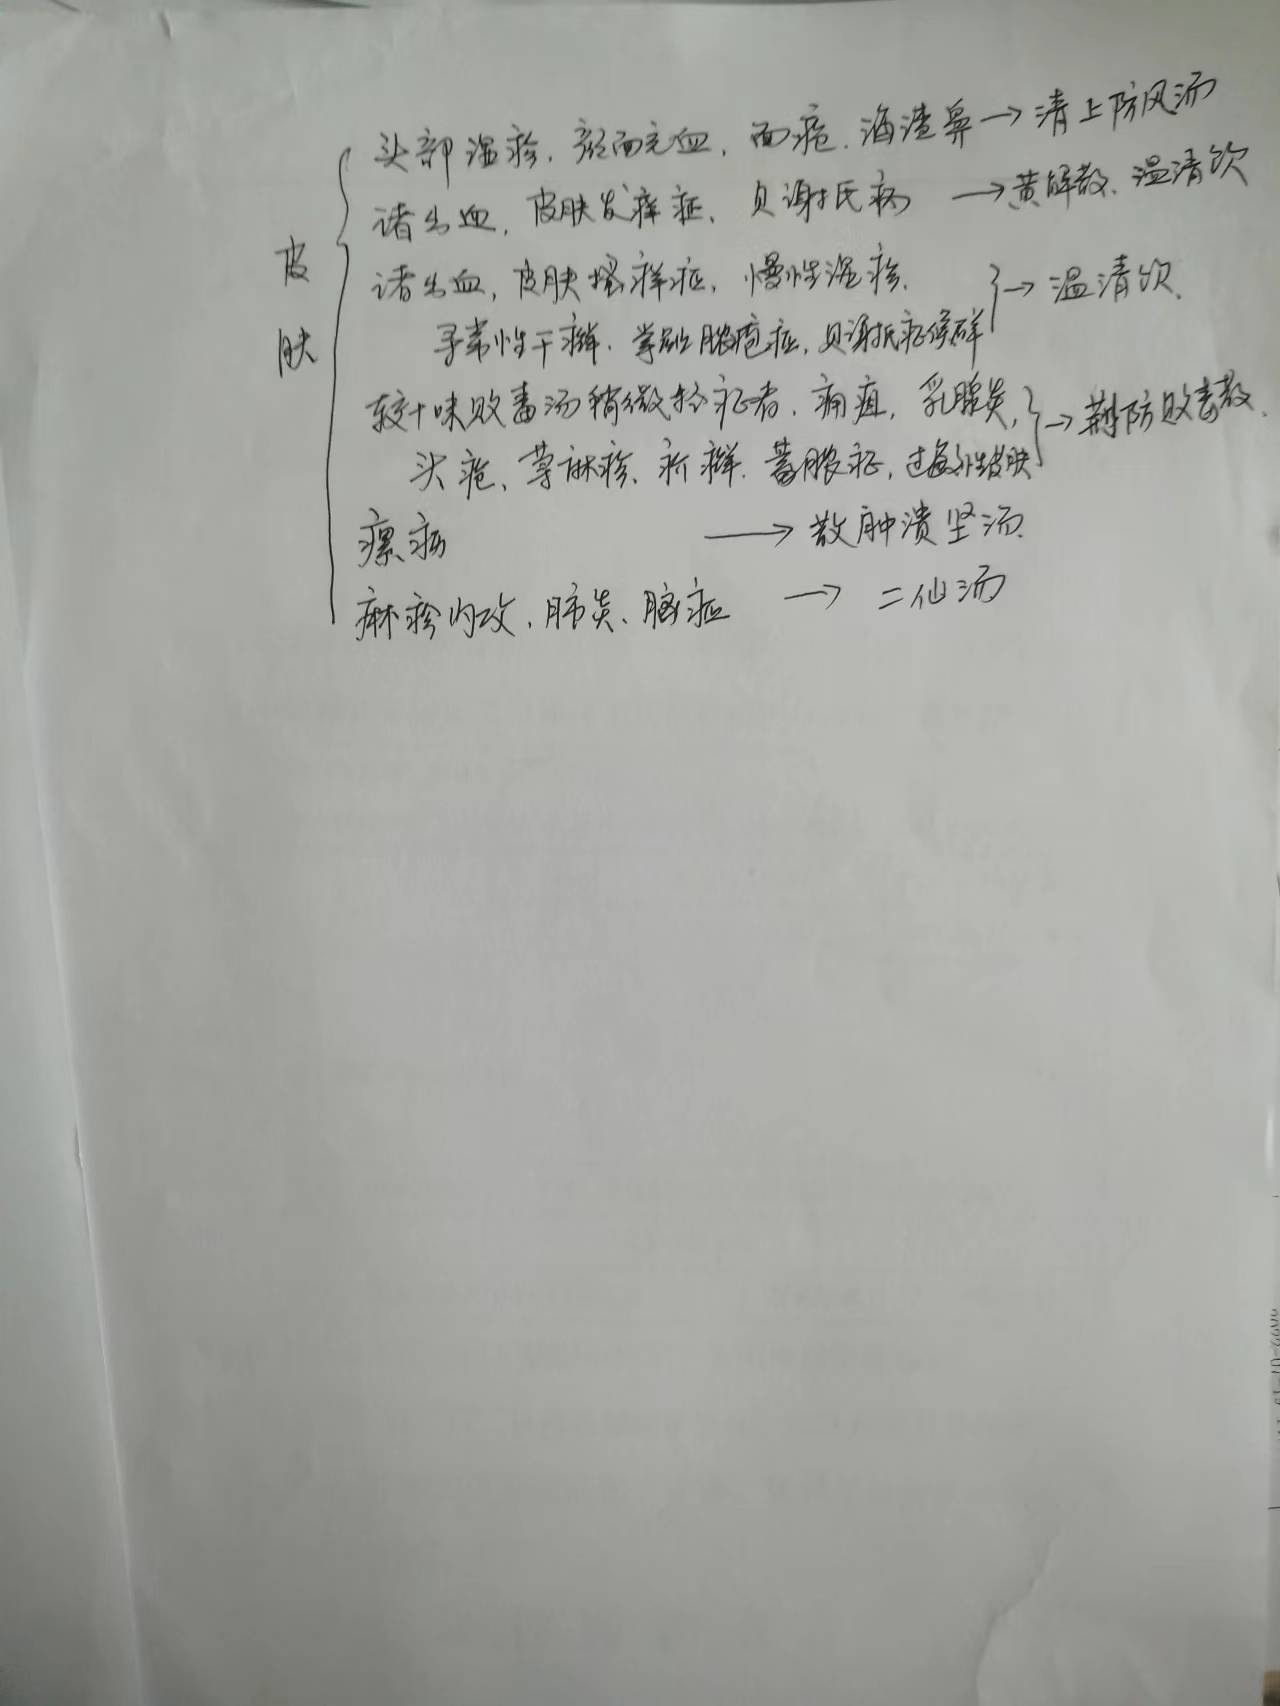 皮肤
头部湿疹、颜面充血、面疱、酒渣鼻→清上防风汤
诸出血，皮肤发痒症、贝谢抵氏病→黄解散、温清饮
诸出血，皮肤搔痒症，慢性湿疹、
寻常性干癣、掌跖脓疱症，贝谢抵症候群→温清饮、
较十味败毒汤稍微轻症者、痈疽，乳腺炎，
头疮、荨麻疹、疥癣、蓄脓症，过敏性皮肤→荆防败毒散、
瘰疬→散肿溃坚汤
麻疹内攻、肺炎、脑症→二仙汤